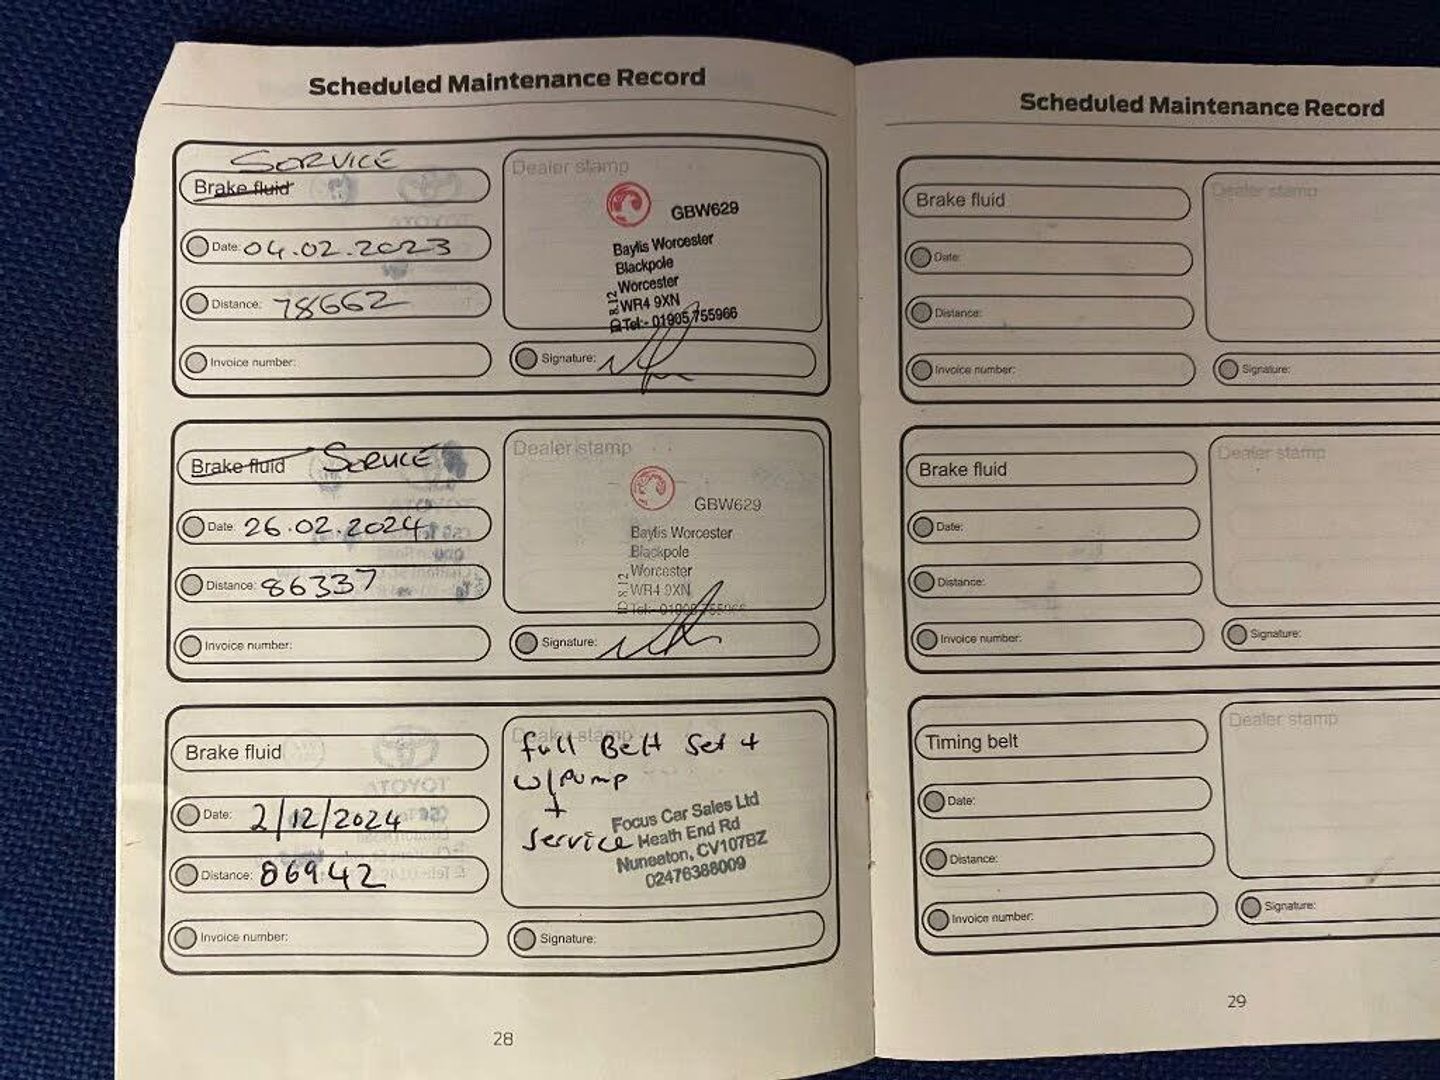 Scheduled Maintenance Record
SERVICE
Brake fluid
Date: 04.02.2023
Distance: 78662
Invoice number:
Dealer stamp
GBW629
Baylis Worcester
Blackpole
Worcester
WR4 9XN
Tel:- 01905 755966
Signature:
Brake fluid SERVICE
Date: 26.02.2024
Distance: 86337
Invoice number:
Dealer stamp
GBW629
Baylis Worcester
Blackpole
Worcester
WR4 9XN
Tel:- 01905 755966
Signature:
Brake fluid
Date: 2/12/2024
Distance: 86942
Invoice number:
Dealer stamp
full Belt Set +
w/pump
+
Service
Focus Car Sales Ltd
Heath End Rd
Nuneaton, CV107BZ
02476388009
Signature:
28
Scheduled Maintenance Record
Brake fluid
Date:
Distance:
Invoice number:
Dealer stamp
Signature:
Brake fluid
Date:
Distance:
Invoice number:
Dealer stamp
Signature:
Timing belt
Date:
Distance:
Invoice number:
Dealer stamp
Signature:
29